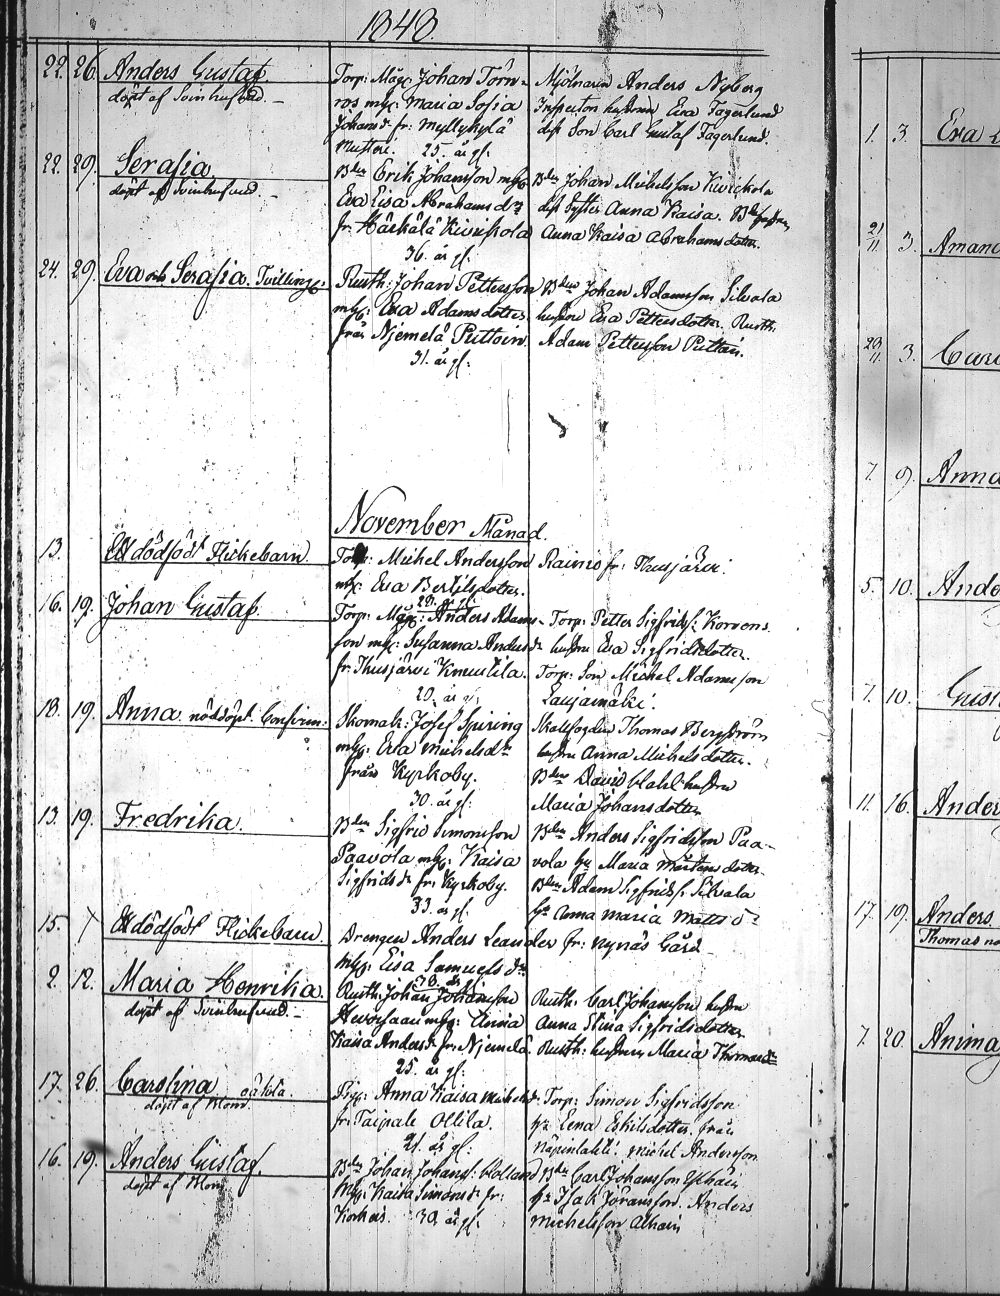 1848.
22. 26. Anders Gustaf.
döpt af Svinhufvud.
Torp: Måg: Johan Törn-
ros mhu: Maria Sofia
Johansdr fr: Myllykylä
25. år gl:
Mjölnaren Anders Nyberg
Inspectorn hustrun Eva Fagerlund
dess Son Carl Gustaf Fagerlund.
22. 29. Serafia
döpt af Svinhufvud
Bden Erik Johansson mhu
Eva Lisa Abrahamsdr
fr: Härkälä Kiviskola
36. år gl.
Bden Johan Michelsson
dess Syster Anna Kaisa.
Anna Kaisa Abrahamsdotter.
24. 29. Eva och Serafia. Tvillingr
Rusth: Johan Pettersson
mhu: Eva Adamsdotter
från Njemelä Puttoin.
31. år gl.
Bden Johan Adamsson Silvola
hustru Eva Pettersdotter. Rusth:
Adam Pettersson Puttain.
November Månad.
13. Ett dödfödt Flickebarn
Torp: Michel Andersson Rainio fr: Thusjärvi.
mhu: Eva Bertilsdotter.
28. år gl:
16. 19. Johan Gustaf.
Torp: Måg: Anders Adams-
son mhu: Susanna Andersdr
fr: Thusjärvi Knuutila.
20. år gl.
Torp: Petter Sigfridss:
hustru Eva Sigfridsdotter.
Torp: Son Michel Adamsson
Laujamäki.
18. 19. Anna. nöddöpt. Confirm:
Skomak: Josef Spiring
mhu: Eva Michelsdr
från Kyrkoby.
30. år gl:
Skallfogden Thomas Bergström
hustru Anna Michelsdotter.
Bden David hustru
Maria Johansdotter
13. 19. Fredrika.
Bden Sigfrid Simonsson
Paavola mhu: Kaisa
Sigfridsdr fr: Kyrkoby.
33. år gl.
Bden Anders Sigfridsson Paa-
vola hu Maria Mårtensdotter
Bden Adam Sigfridss: Silvola
hu Anna Maria Mattsdr
15. Ett dödfödt Flickebarn.
Drengen Anders Leander fr: Nynäs Gård
mhu: Lisa Samuelsdr
2. 12. Maria Henrika.
döpt af Svinhufvud.
Rusth: Johan Johansson
mhu: Anna
Kaisa Andersdr fr: Njemelä
25. år gl:
Rusth: Carl Johansson hustru
Anna Stina Sigfridsdotter
Rusth: hustrun Maria Thomasdr
17. 26. Carolina oäkta.
döpt af Mond.
Pig: Anna Kaisa Michelsdr
fr: Taipale Ollila.
21. år gl:
Torp: Simon Sigfridsson
hu Lena Eskilsdotter från
Näpinlahti. Michel Andersson
16. 19. Anders Gustaf.
döpt af Mond
Bden Johan Johanss:
mhu: Kaisa Simonsdr fr:
30. år gl:
Bden Carl Johansson
Anders
Michelsson
1. 3. Eva
21/11 3. Amand
23/11 3. Caro
7. 9. Anna
5. 10. Ande
7. 10. Gust
11. 16. Ander
17. 19. Anders
Thomas
7. 20.